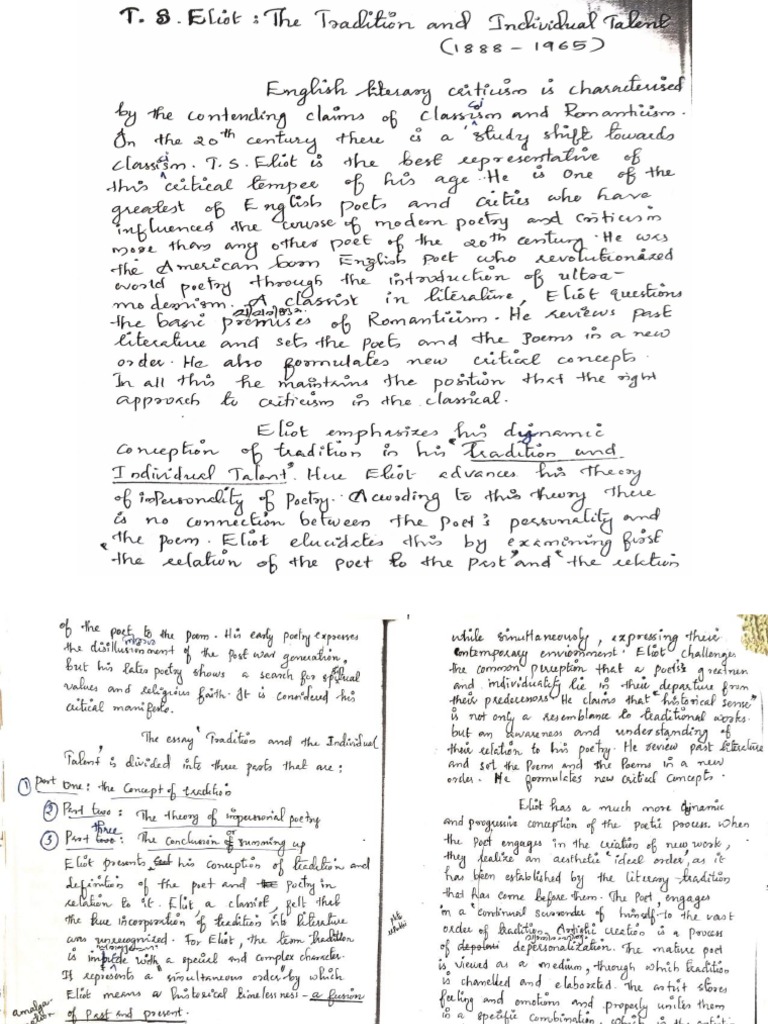 T. S. Eliot : The Tradition and Individual Talent
(1888 - 1965)
English literary criticism is characterised
by the contending claims of classicism and Romanticism.
In the 20th century there is a study shift towards
classicism. T. S. Eliot is the best representative of
this critical temper of his age. He is one of the
greatest of English poets and critics who have
influenced the course of modern poetry and criticism
more than any other poet of the 20th century. He was
the American born English poet who revolutionized
world poetry through the introduction of ultra-
modernism. A classist in literature, Eliot questions
the basic premises of Romanticism. He reviews past
literature and sets the poets and the poems in a new
order. He also formulates new critical concepts.
In all this he maintains the position that the right
approach to criticism in the classical.
Eliot emphasizes his dynamic
conception of tradition in his "Tradition and
Individual Talent". Here Eliot advances his theory
of imPersonality of Poetry. According to this theory there
is no connection between the Poet's personality and
the poem. Eliot elucidates this by examining first
"the relation of the poet to the past" and "the relation
of the poet to the poem. His early poetry expresses
the disillusionment of the post war generation,
but his later poetry shows a search for spiritual
values and religious faith. It is considered his
critical manifesto.
The essay 'Tradition and the Individual
Talent', is divided into three parts that are :
① Part one : the Concept of tradition
② Part two : The theory of impersonal poetry
③ Part three : The Conclusion or summing up
Eliot presents his conception of tradition and
definition of the poet and poetry in
relation to it. Eliot a classist, felt that
the true incorporation of tradition into literature
was unrecognized. For Eliot, the term tradition
is with a special and complex character.
It represents a "simultaneous order" by which
Eliot means a historical timelessness - a fusion
of Past and present.
amalga-
mation
while simultaneously, expressing their
contemporary environment. Eliot challenges
the common perception that a poet's greatness
and individuality lie in their departure from
their predecessors. He claims that "historical sense"
is not only a resemblance to traditional works
but an awareness and understanding of
their relation to his poetry. He review past literature
and set the Poem and the Poems in a new
order. He formulates new critical concepts.
Eliot has a much more dynamic
and progressive conception of the poetic process. When
the Poet engages in the creation of new work,
they realize an aesthetic "ideal order", as it
has been established by the literary tradition
that has come before them. The Poet, engages
in a "continual surrender of himself to the vast
order of tradition. Artistic creation is a process
of depersonalization. The mature poet
is viewed as a medium, through which tradition
is channelled and elaborated. The artist stores
feeling and emotions and properly unites them
in a specific combination, which is the artistic